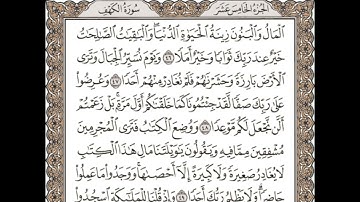 الجزء الخامس عشر سورة الكهف
المال والبنون زينة الحيوة الدنيا والبقيت الصلحت
خير عند ربك ثوابا وخير أملا ٤٦ ويوم نسير الجبال وترى
الأرض بارزة وحشرنهم فلم نغادر منهم أحدا ٤٧ وعرضوا
على ربك صفا لقد جئتمونا كما خلقنكم أول مرة بل زعمتم
ألن نجعل لكم موعدا ٤٨ ووضع الكتب فترى المجرمين
مشفقين مما فيه ويقولون يويلتنا مال هذا الكتب
لا يغادر صغيرة ولا كبيرة إلا أحصىها ووجدوا ما عملوا
حاضرا ولا يظلم ربك أحدا ٤٩ وإذ قلنا للملئكة اسجدوا